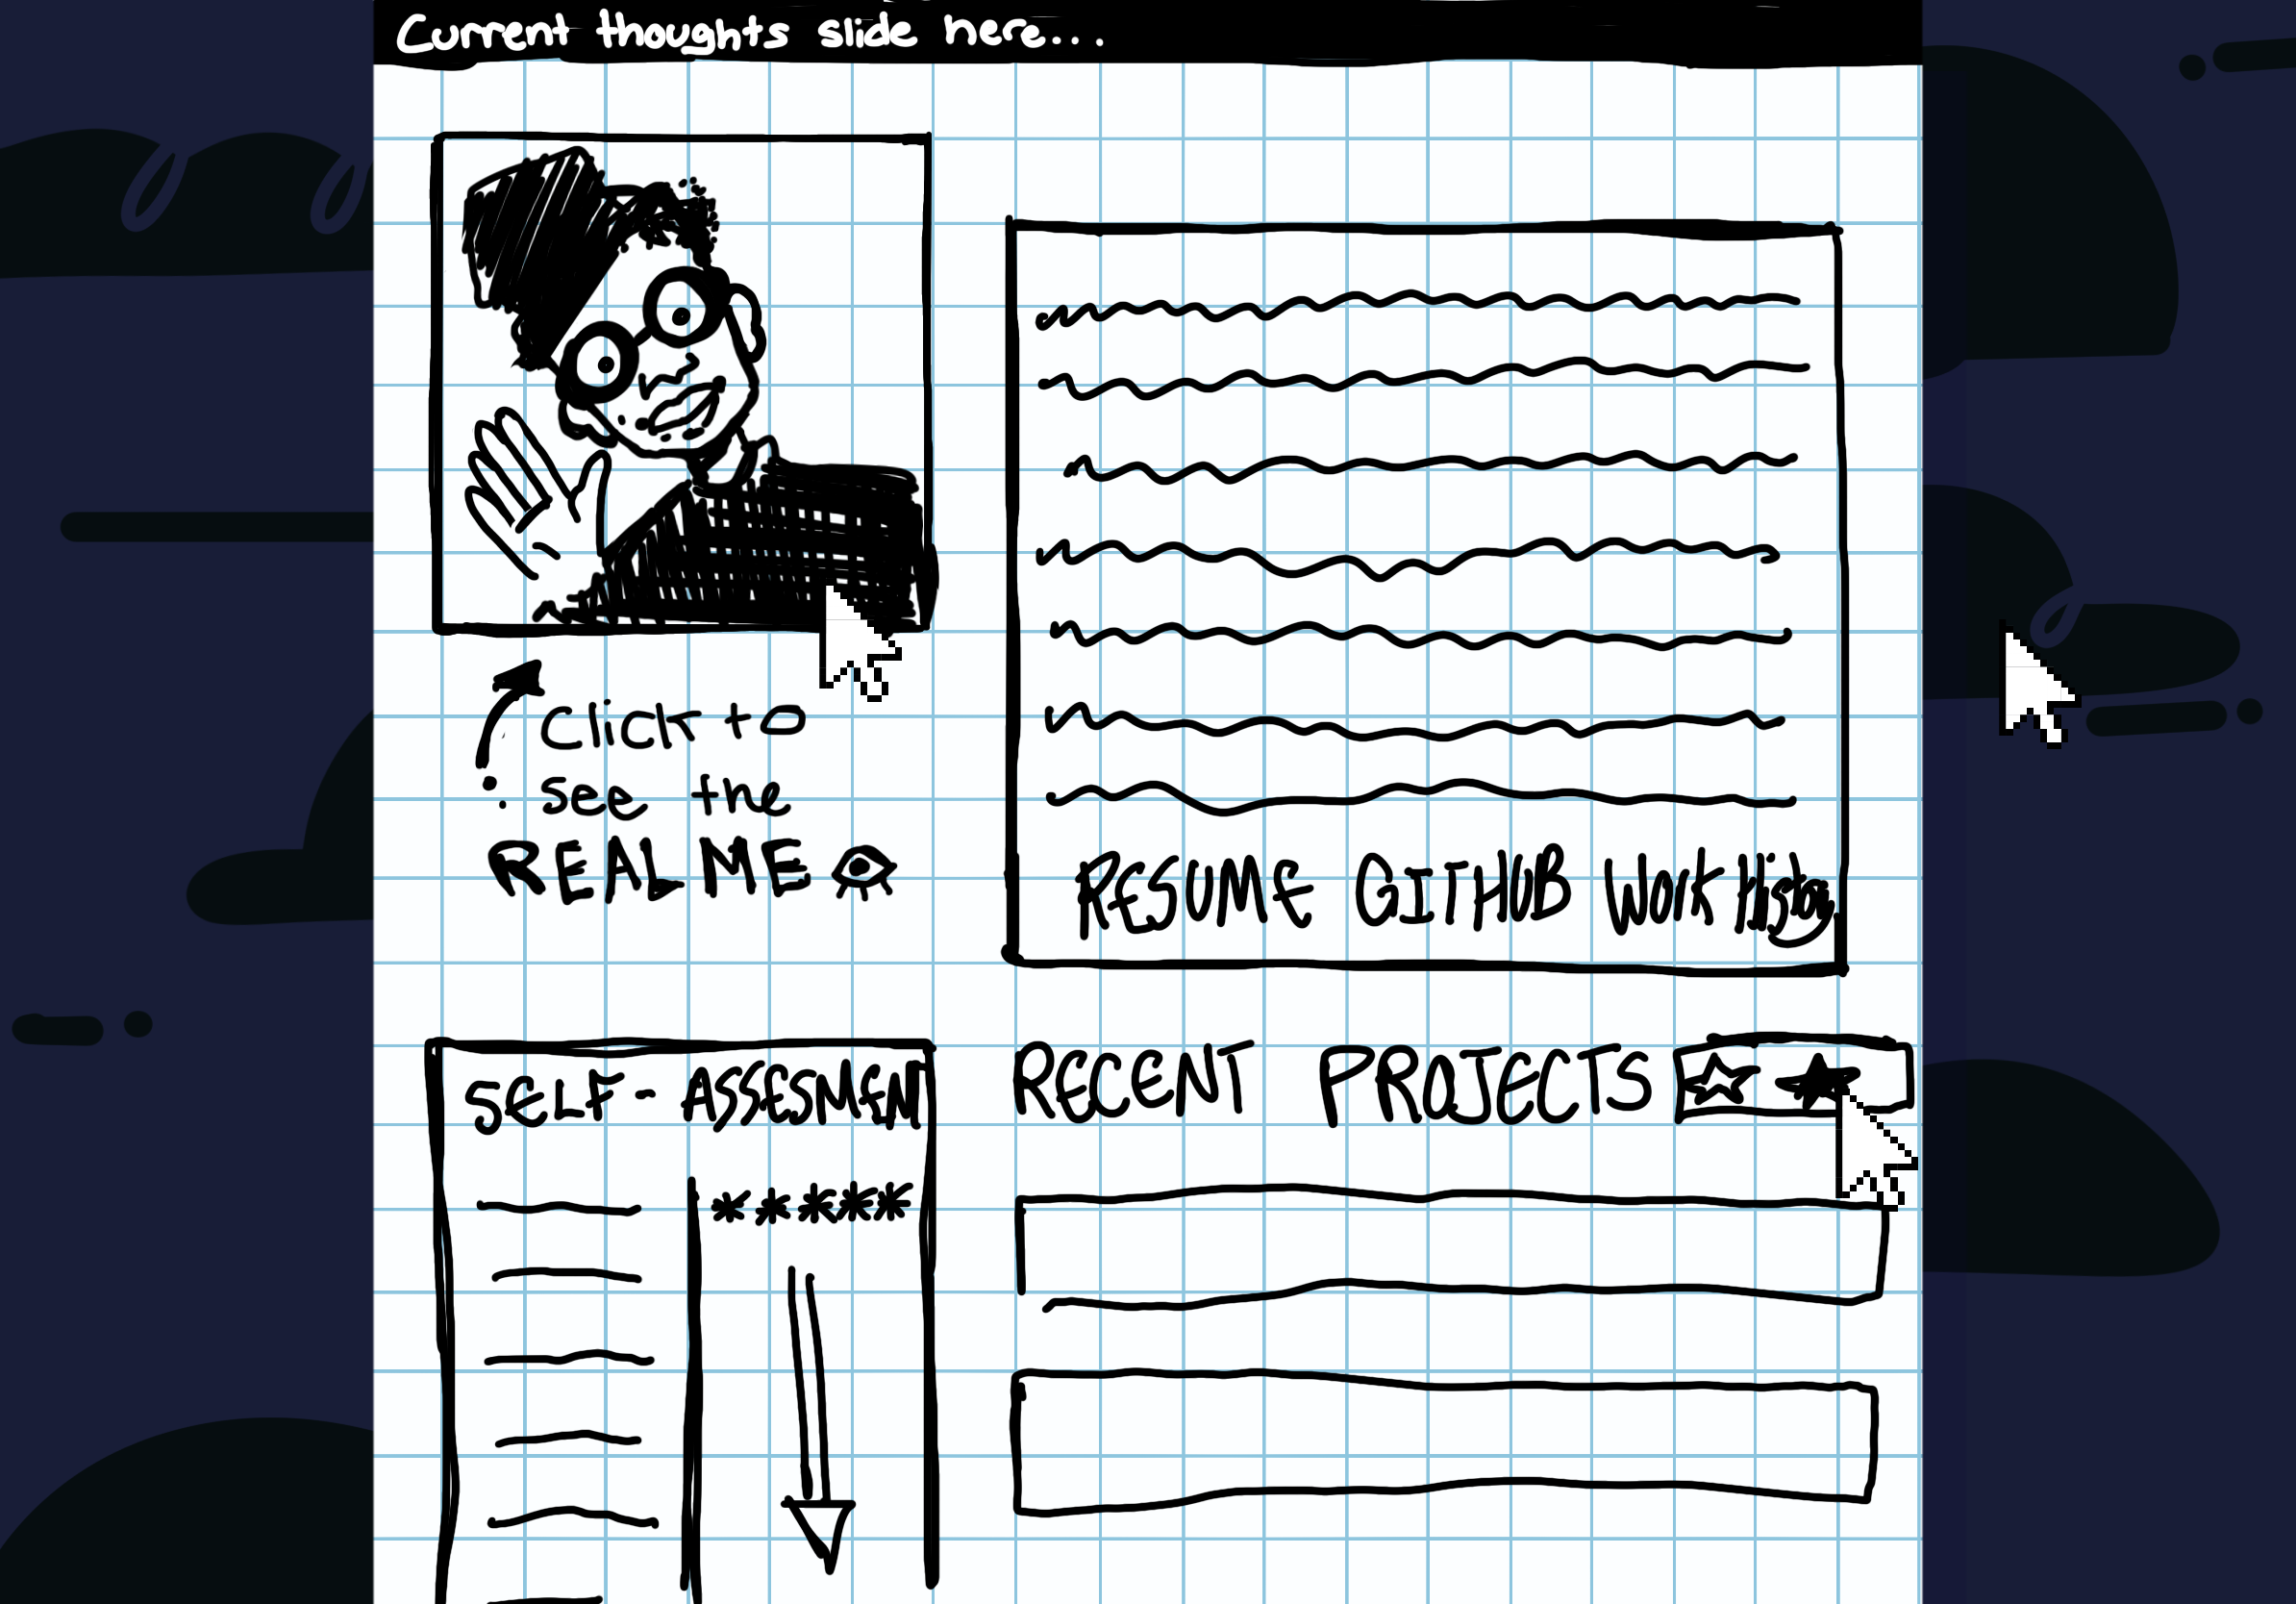 Current thoughts slide here...
Click to
see the
REAL ME
RESUME GITHUB WORK History
SELF-ASSESMEN
*****
RECENT PROJECTS